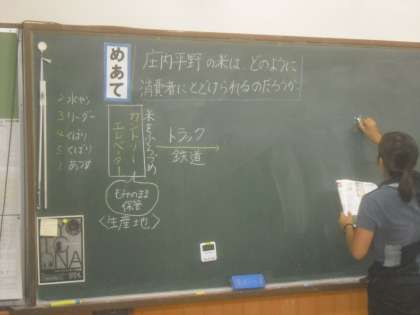 めあて
庄内平野の米は、どのように
消費者にとどけられるのだろうか。
2 水やり
3 リーダー
4 くばり
5 くばり
1 あつめ
カントリー
エレベーター
米をふくろづめ
トラック
鉄道
もみのまま
保管
〈生産地〉